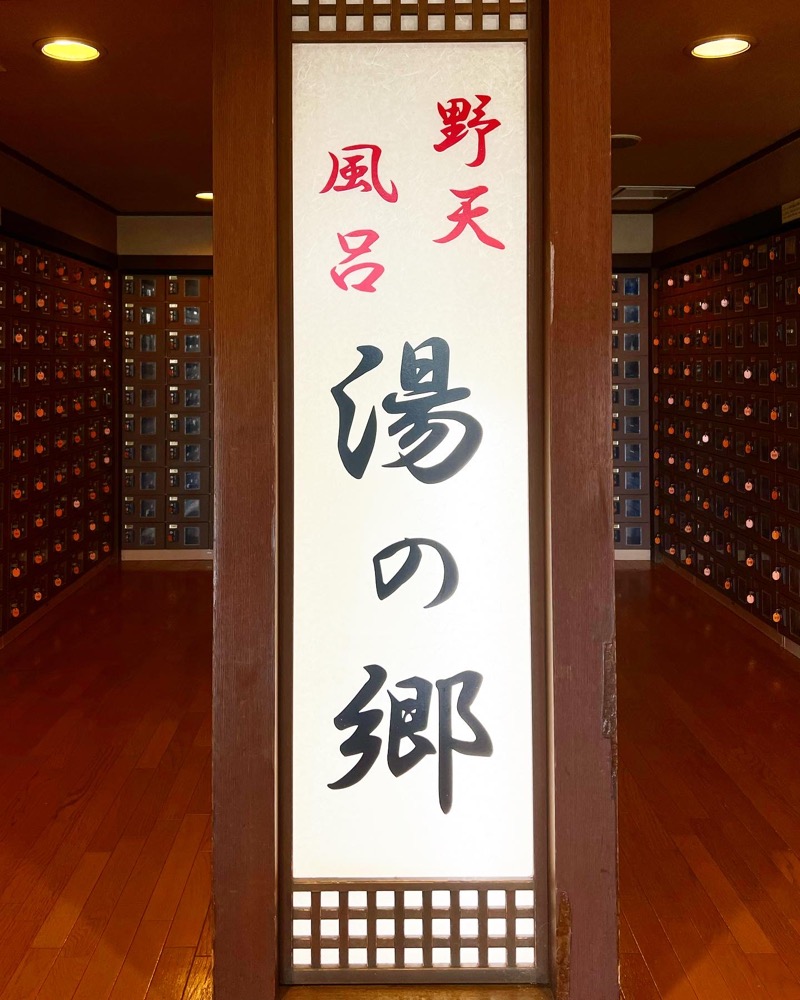 野天
風呂
湯の郷